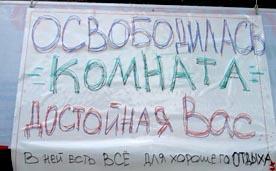 ОСВОБОДИЛАСЬ
=КОМНАТА=
ДОСТОЙНАЯ ВАС
В НЕЙ ЕСТЬ ВСЁ ДЛЯ ХОРОШЕГО ОТДЫХА